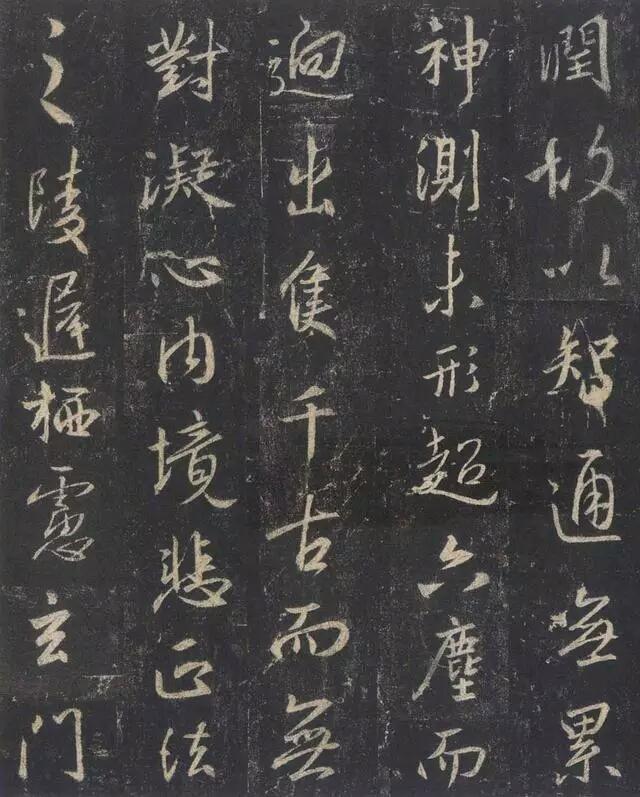 潤故以智通無累
神測未形超六塵而
迥出隻千古而無
對凝心內境悲正法
之陵遲栖慮玄門